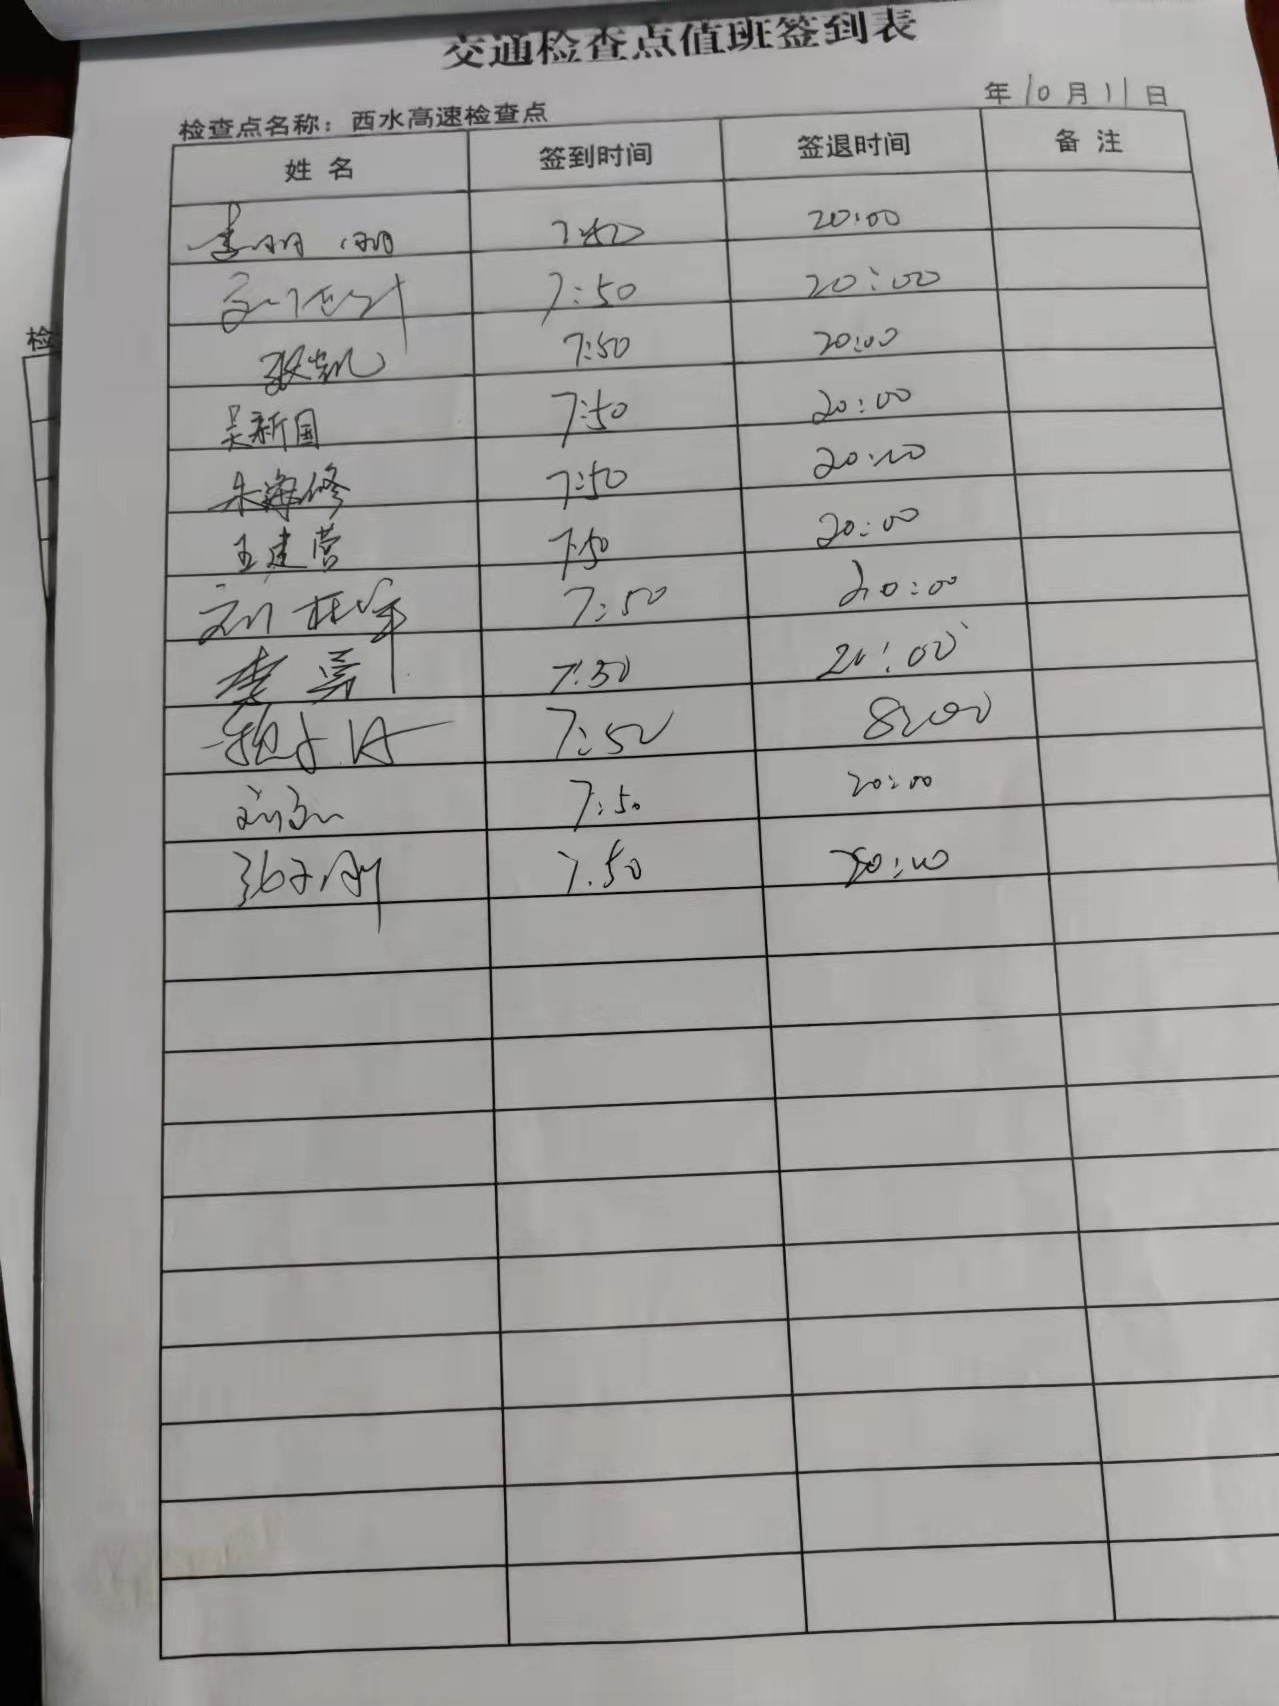 交通检查点值班签到表
年10月11日
检查点名称：西水高速检查点
姓 名 签到时间 签退时间 备 注
20:00
7:50 20:00
张凯 7:50 20:00
吴新国 7:50 20:00
朱海修 7:50 20:00
王建营 7:50 20:00
刘 7:50 20:00
李勇 7:50 20:00
7:50 8:00
刘 7:50 20:00
张 7.50 20:00
检